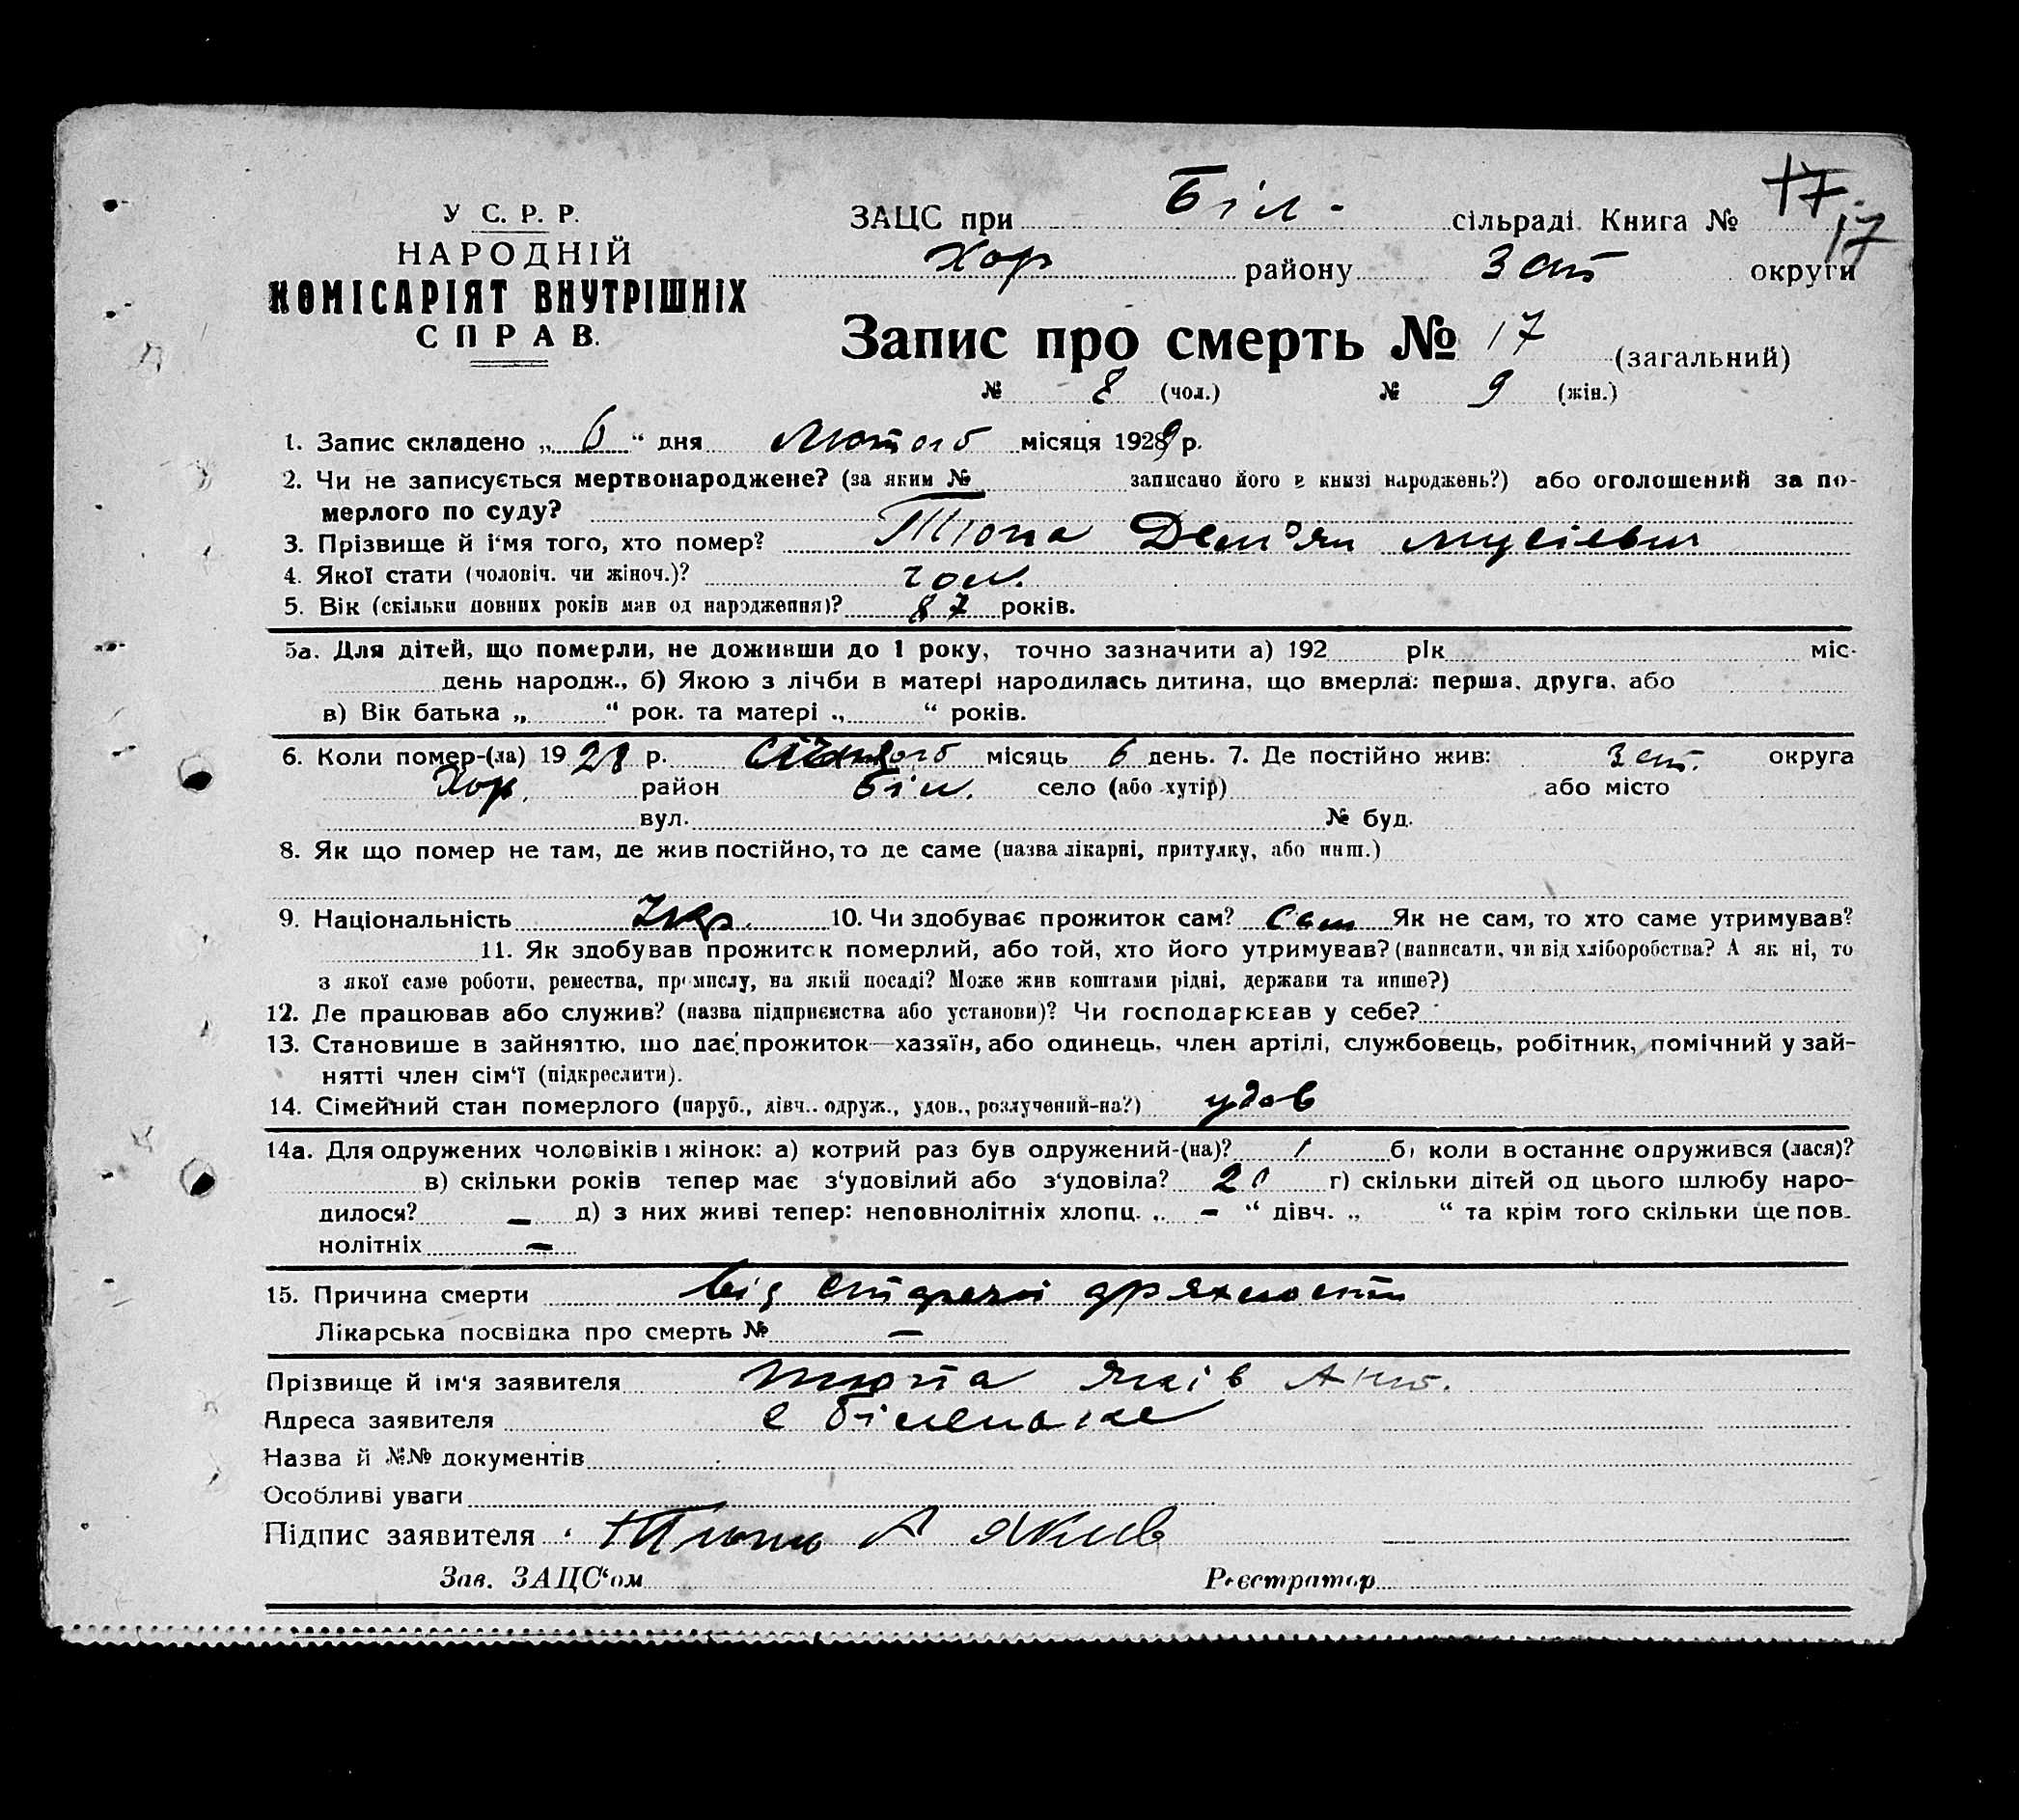 У С. Р. Р.
НАРОДНІЙ
КОМІСАРІЯТ ВНУТРІШНІХ
СПРАВ.
ЗАЦС при Біл. сільраді. Книга № 17. 17
Хор району Зап округи
Запис про смерть № 17 (загальний)
№ 8 (чол.) № 9 (жін.)
1. Запис складено „ 6 “ дня Лютого місяця 1929 р.
2. Чи не записується мертвонароджене? (за яким № записано його в книзі народжень?) або оголошений за по-
мерлого по суду?
3. Прізвище й і‘мя того, хто помер? Тюпа Дем'ян Мусієвич
4. Якої стати (чоловіч. чи жіноч.)? чол.
5. Вік (скільки повних років мав од народження)? 87 років.
5а. Для дітей, що померли, не доживши до 1 року, точно зазначити а) 192 рік міс-
день народж., б) Якою з лічби в матері народилась дитина, що вмерла: перша, друга, або
в) Вік батька „ “ рок. та матері „ “ років.
6. Коли помер-(ла) 1928 р. місяць 6 день. 7. Де постійно жив: Зап. округа
Хор. район Біл. село (або хутір) або місто
вул. № буд.
8. Як що помер не там, де жив постійно, то де саме (назва лікарні, притулку, або инш.)
9. Національність Укр. 10. Чи здобуває прожиток сам? Сам Як не сам, то хто саме утримував?
11. Як здобував прожиток померлий, або той, хто його утримував? (написати, чи від хліборобства? А як ні, то
з якої саме роботи, ремества, промислу, на якій посаді? Може жив коштами рідні, держави та инше?)
12. Де працював або служив? (назва підприємства або установи)? Чи господарював у себе?
13. Становище в зайняттю, що дає прожиток—хазяїн, або одинець, член артілі, службовець, робітник, помічний у зай-
нятті член сім‘ї (підкреслити).
14. Сімейний стан померлого (паруб., дівч.. одруж., удов., розлучений-на?) удов
14а. Для одружених чоловіків і жінок: а) котрий раз був одружений-(на)? 1 б) коли в останнє одружився (лася)?
в) скільки років тепер має з‘удовілий або з‘удовіла? 20 г) скільки дітей од цього шлюбу наро-
дилося? — д) з них живі тепер: неповнолітніх хлопц. „ - “ дівч. „ “ та крім того скільки ще пов-
нолітніх —
15. Причина смерти від старечої дряхлости
Лікарська посвідка про смерть № —
Прізвище й ім‘я заявителя Тюпа Яків Ант.
Адреса заявителя с Біленьке
Назва й №№ документів
Особливі уваги
Підпис заявителя Тюпа А Яков
Зав. ЗАЦС‘ом Реєстратор